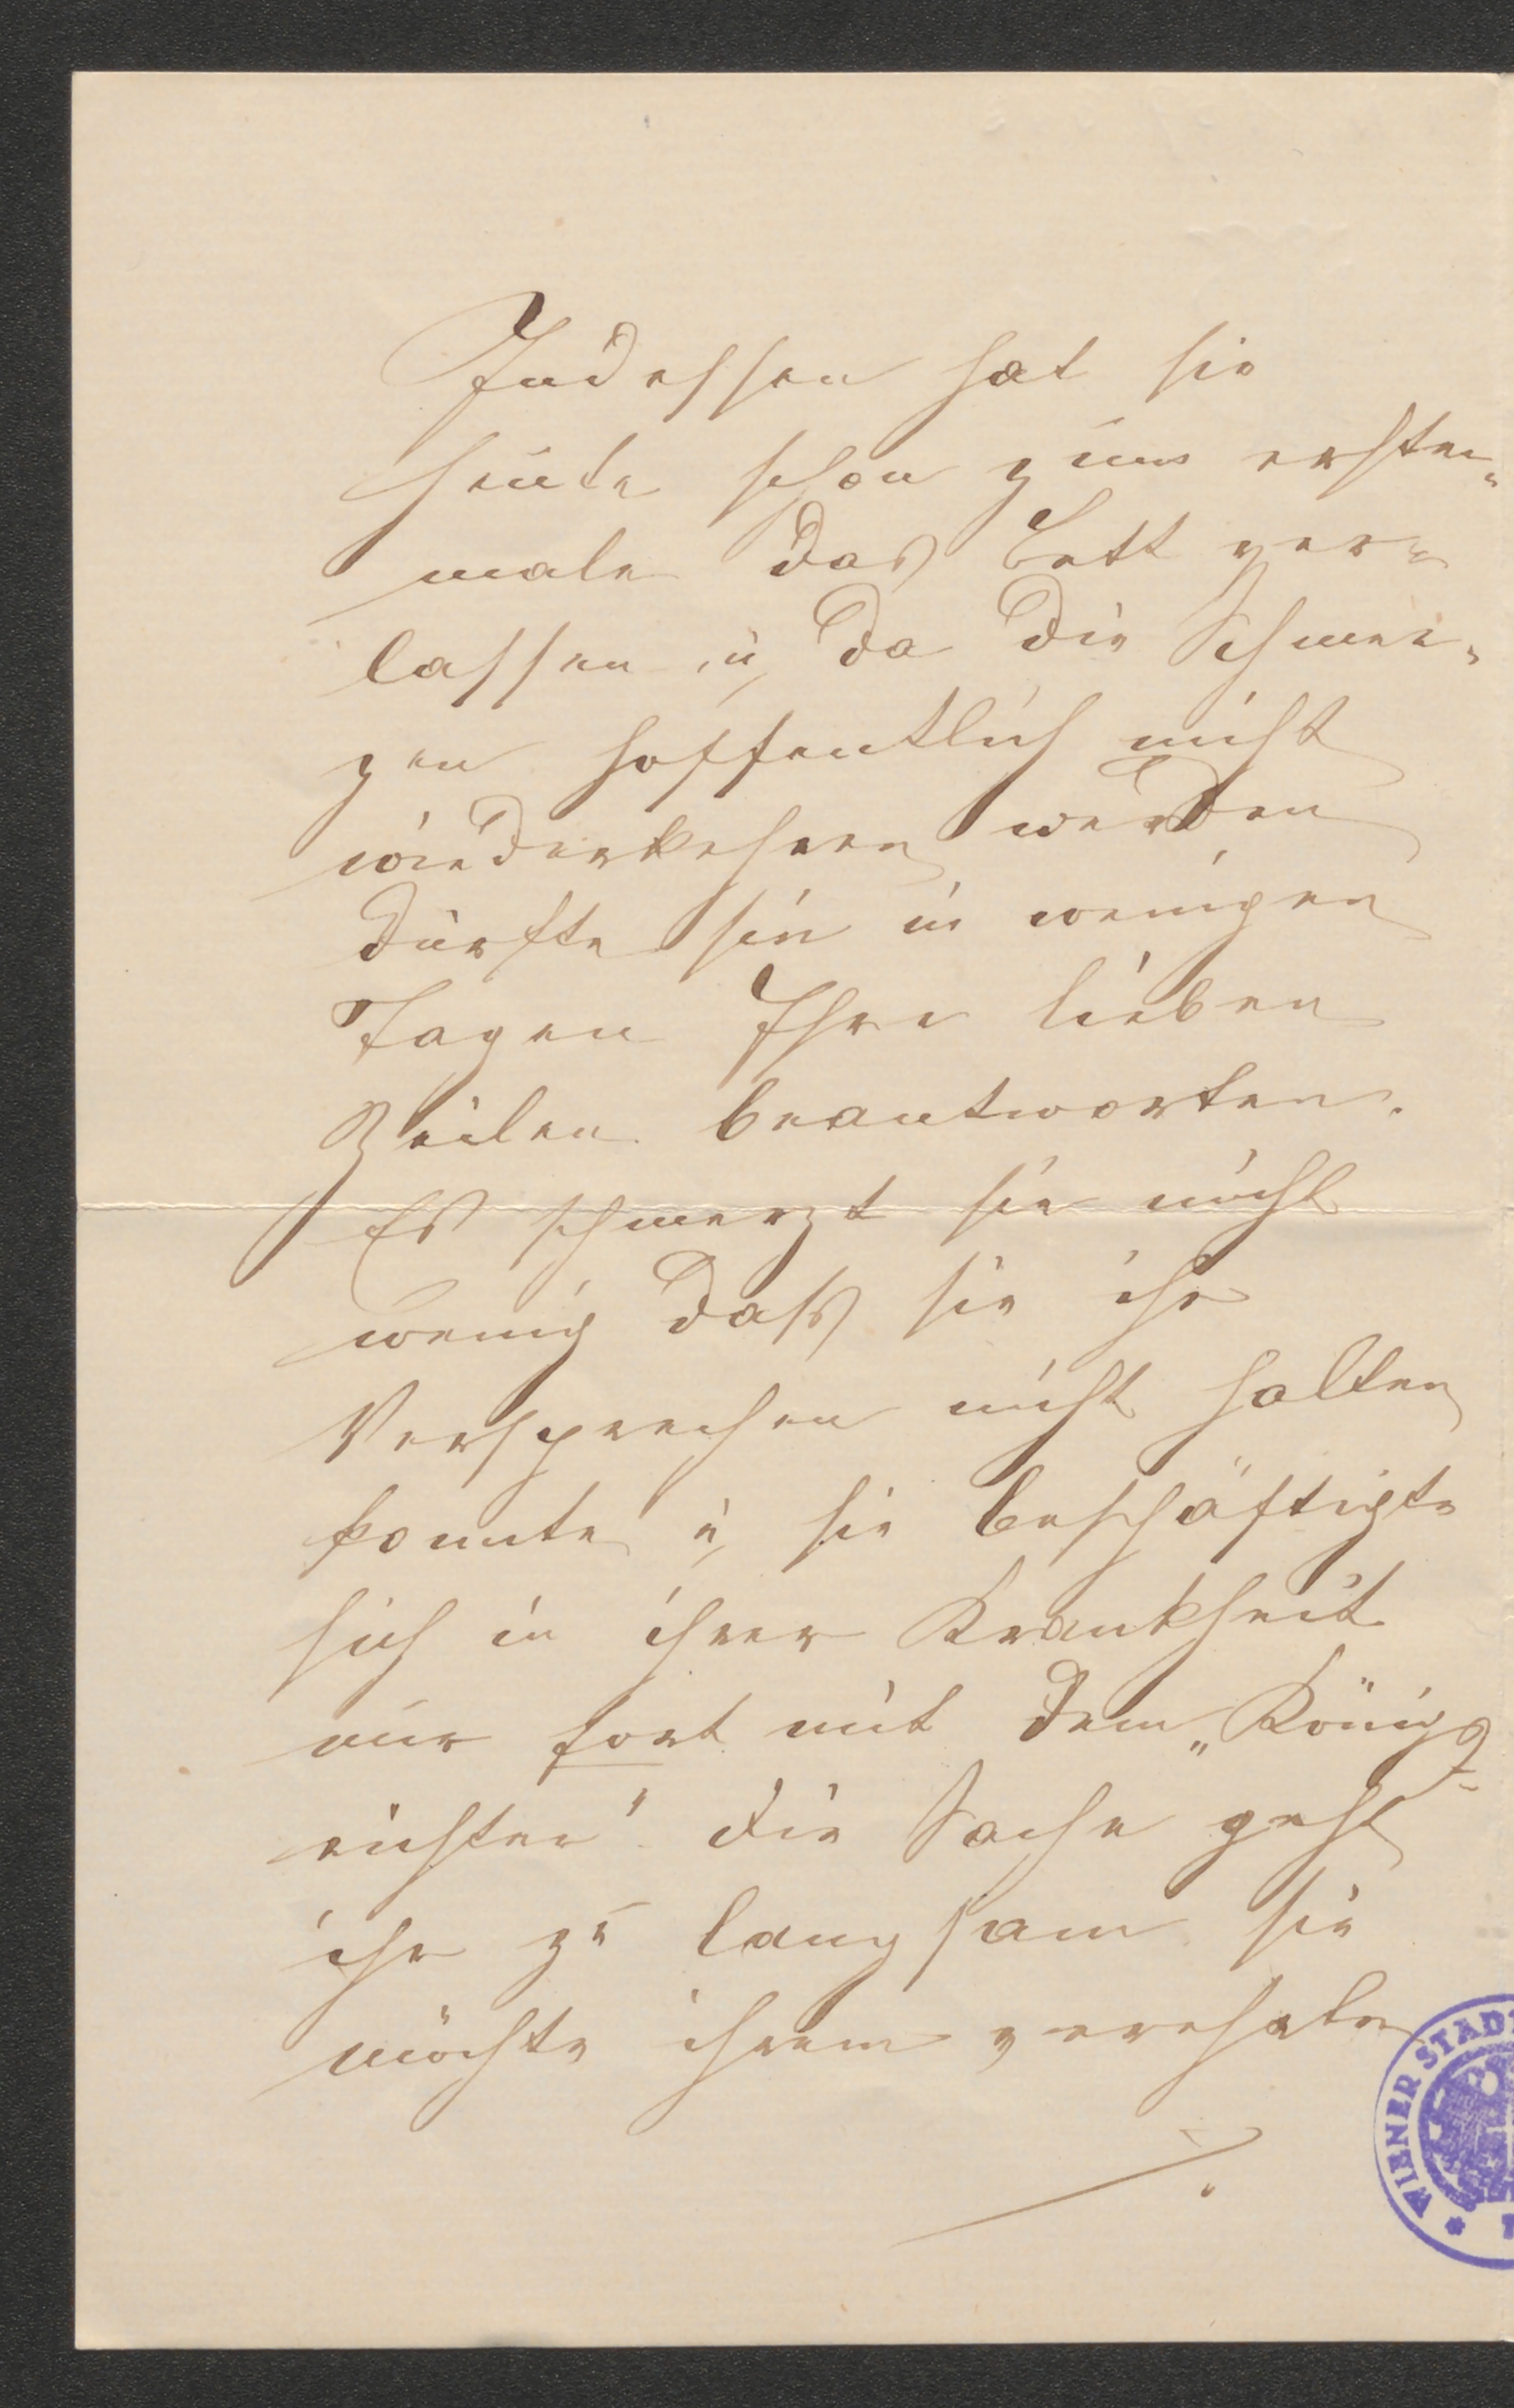 Indessen hat sie
heute schon zum ersten=
male das Bett ver=
lassen u, da die Schmer=
zen hoffentlich nicht
wiederkehren werden
dürfte sie in wenigen
Tagen Ihre lieben
Zeilen beantworten.
Es schmerzt sie nicht
wenig daß sie ihr
Versprechen nicht halten
konnte u, sie beschäftigte
sich in ihrer Krankheit
nur fort mit dem „Königs=
richter" die Sache geht
ihr zu langsam sie
möchte ihrem verehrten
./.
WIENER STADT